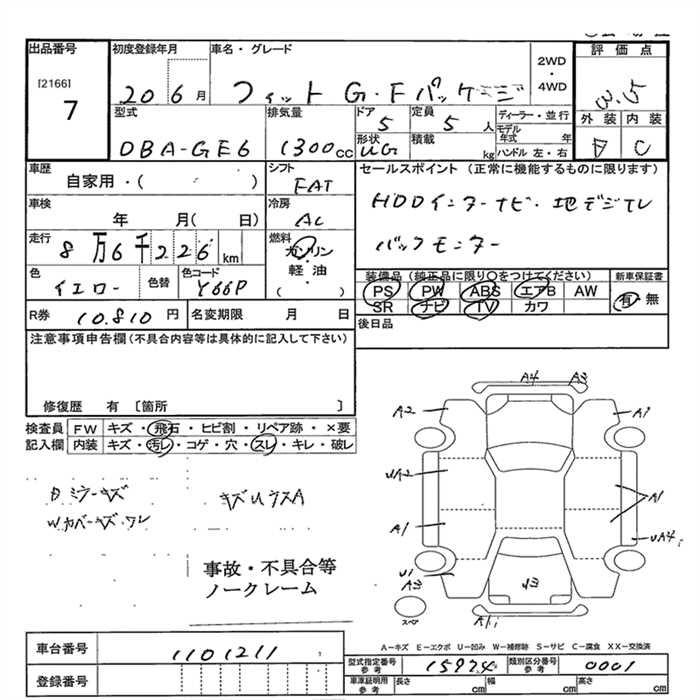 出品番号
[2166]
7
初度登録年月
20 6 月
車名・グレード
フィット G・Fパッケージ
2WD
・
4WD
評価点
3.5
外装 内装
C
型式
DBA-GE6
排気量
1300 cc
ドア
5
形状
UG
定員
5 人
積載
kg
ディーラー・並行
モデル年式 年
ハンドル 左・右
車歴
自家用・( )
シフト
FAT
セールスポイント (正常に機能するものに限ります)
HDDインターナビ・地デジTV
バックモニター
車検
年 月( 日)
冷房
AC
走行
8万6千226km
燃料
ガソリン
・
軽・油
( )
色
イエロー
色替
色コード
Y66P
装備品 (純正品に限り〇をつけてください)
PS PW ABS エアB AW
SR ナビ TV カワ
新車保証書
有・無
R券
10.810 円
名変期限
月 日
後日品
注意事項申告欄(不具合内容等は具体的に記入して下さい)
修復歴 有 〔箇所 〕
検査員記入欄
FW キズ・飛石・ヒビ割・リペア跡・×要
内装 キズ・汚レ・コゲ・穴・スレ・キレ・破レ
Dミラーキズ
Wカバーキズ・ワレ
事故・不具合等
ノークレーム
A4 A3
A2 A1
UA2
A1 A1
UA4
A3
スペア
A-キズ E-エクボ U-凹み W-補修跡 S-サビ C-腐食 XX-交換済
車台番号
1101211
登録番号
型式指定番号
参考
15974
類別区分番号
参考
0001
車庫証明用
参考
長さ cm
幅 cm
高さ cm